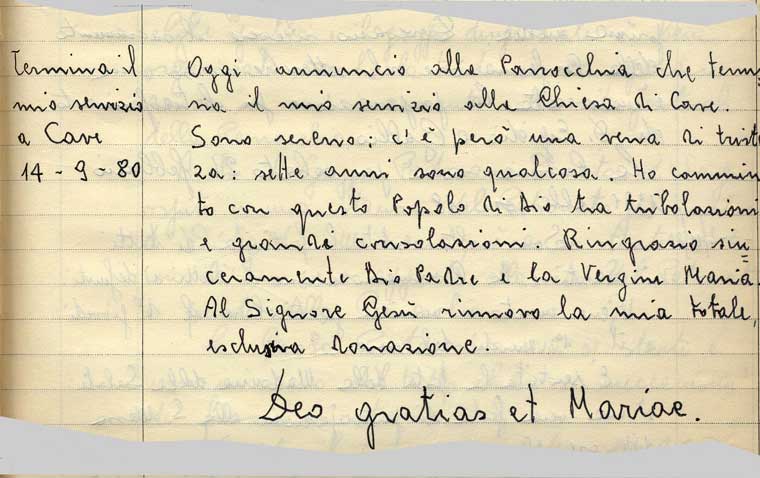 Termina il
mio servizio
a Cave
14 - 9 - 80
Oggi annuncio alla Parrocchia che termi=
na il mio servizio alla Chiesa di Cave.
Sono sereno; c'è però una vena di trist
za: sette anni sono qualcosa. Ho cammin
to con questo Popolo di Dio tra tribolazioni
e grandi consolazioni. Ringrazio sin=
ceramente Dio Padre e la Vergine Maria.
Al Signore Gesù rinnovo la mia totale,
esclusiva donazione.
Deo gratias et Mariae.